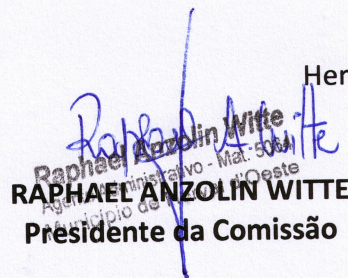 Her
Raphael A. Witte
Raphael Anzolin Witte
Agente Administrativo - Mat. 506
Município de d'Oeste
RAPHAEL ANZOLIN WITTE
Presidente da Comissão